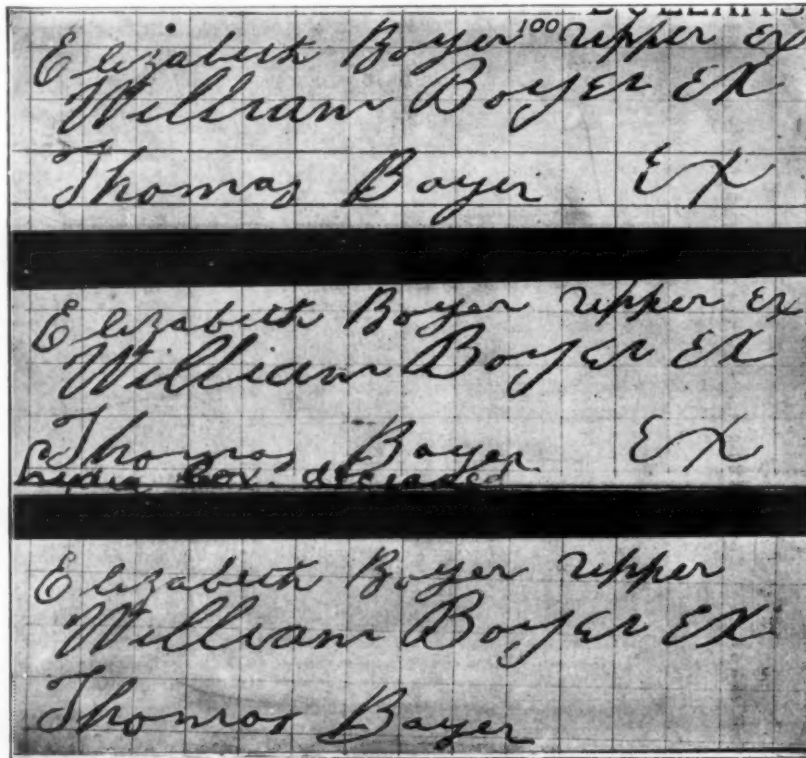 DOLLARS
Elizabeth Boyer 100 Upper Ex
William Boyer EX
Thomas Boyer EX
Elizabeth Boyer Upper Ex
William Boyer EX
Thomas Boyer EX
Lydia Cox. deceased
Elizabeth Boyer Upper
William Boyer EX
Thomas Boyer